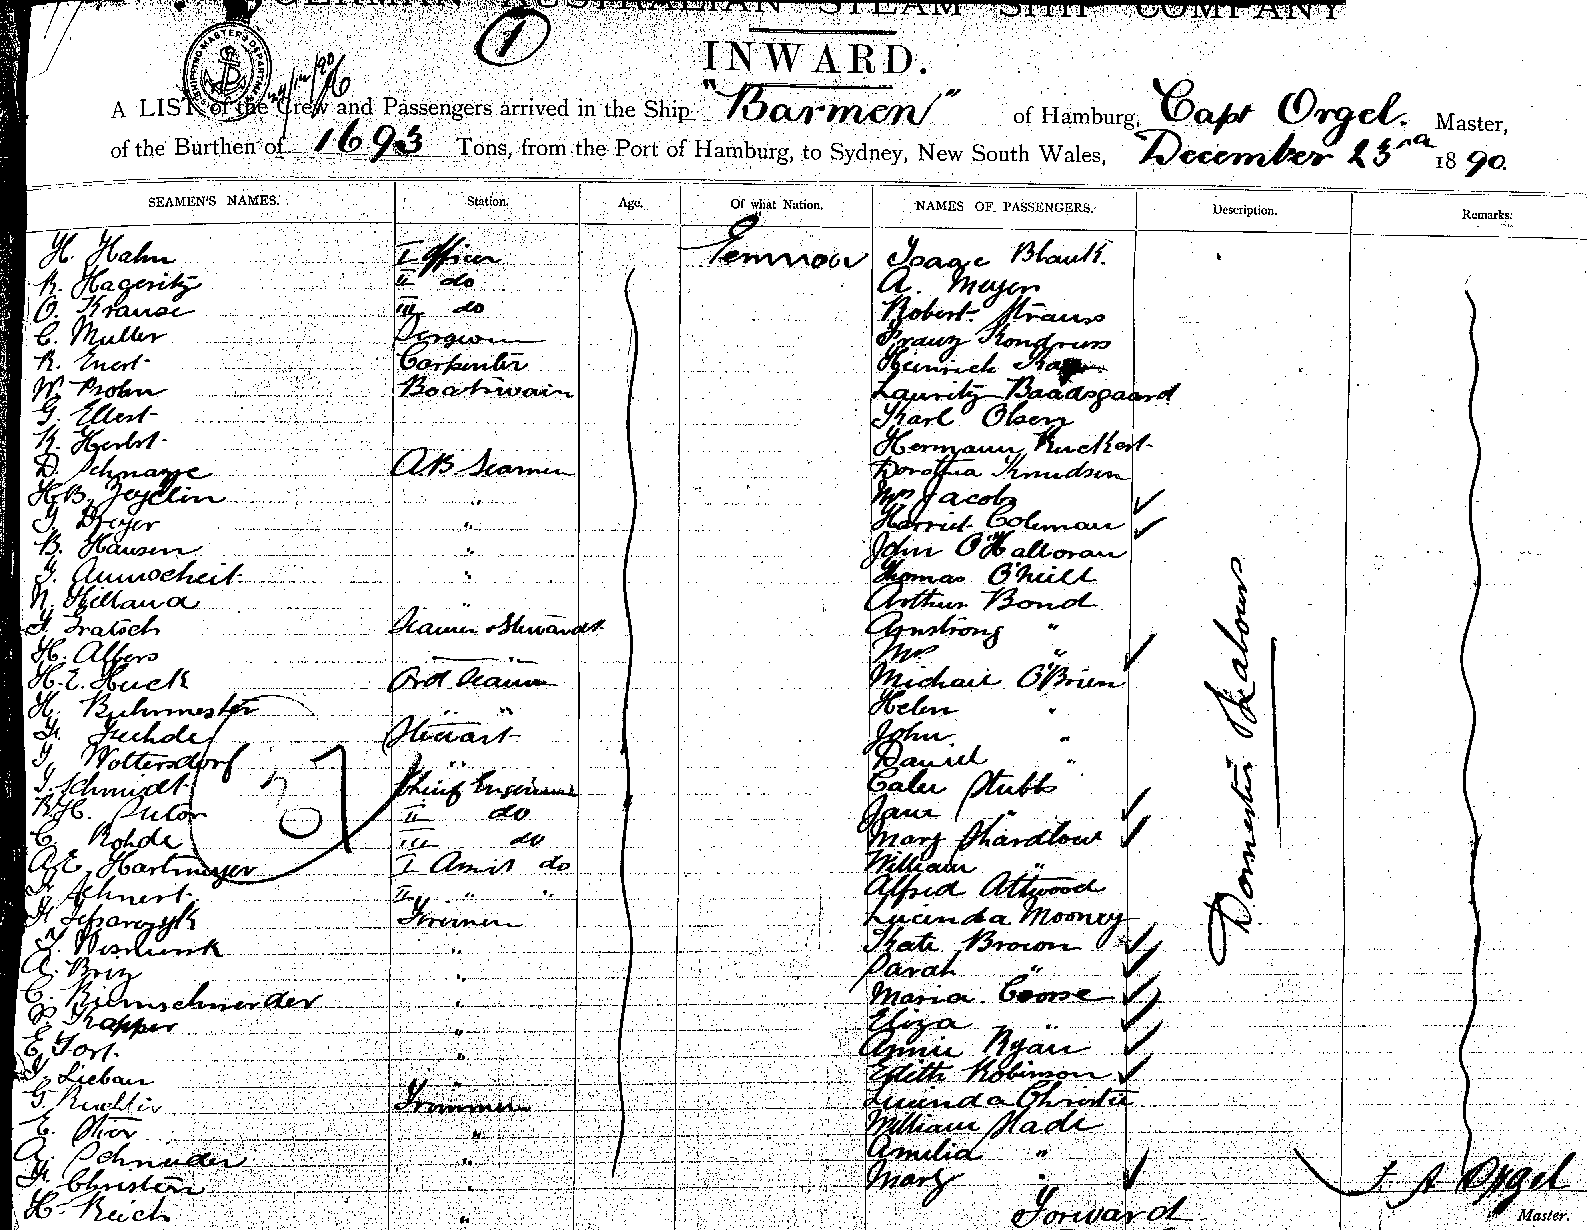 GERMAN AUSTRALIAN STEAM SHIP COMPANY
1
INWARD.
A LIST of the Crew and Passengers arrived in the Ship "Barmen" of Hamburg, Capt Orgel. Master,
of the Burthen of 1693 Tons, from the Port of Hamburg, to Sydney, New South Wales, December 23rd 1890.
SEAMEN'S NAMES. Station. Age. Of what Nation. NAMES OF PASSENGERS. Description. Remarks.
H. Hahn I Officer Isaac Blank.
K. Hageritz II do A. Meyer
O. Krause III do Robert Strauss
C. Muller Franz
K. Carpenter Heinrich
W. Prohn Boatswain Lauritz Baadsgaard
G. Ellert Karl Olsen
K. Herbst Hermann Ruckert
D. Schnagge AB Seamen Dorothea Knudsen
H.B. Zeyelin " Mrs Jacobs
Dreyer " Harriet Coleman
B. Hansen " John O'Halloran
" Thomas O'Neill
N. Helland " Arthur Bond
Armstrong "
H. Albers " Mrs "
H.E. Huck Ord Seamen Michael O'Brien
H. Buhrmester " " Helen "
Stewart John "
Woltersdorf " Daniel "
Schmidt Chief Engineer Stubbs
II do Jane "
C. Rohde III do Mary Shardlow
A.E. Hartmeyer I Assist do William "
II " " Alfred Attwood
Firemen Lucinda Mooney
" Kate Brown
A. Briz " Sarah "
C. Riemschneider " Maria Coorse
Kapper " Eliza "
E. " Annie Ryan
Lieban " Edith Robinson
G. Trimmers Lucinda Christie
E. " William Slade
A. Schneider " Amilia "
Christen " Mary "
H. Reich " Forward
Domestic & Labours
Orgel
Master.